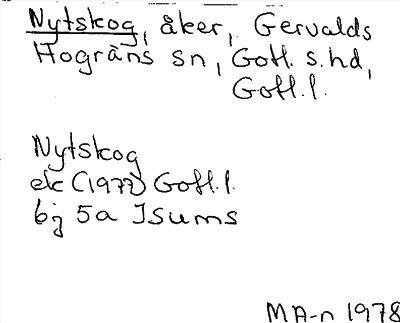 Nytskog, åker, Gervalds
Hogräns sn, Gotl. s.hd,
Gotl.l.
Nytskog
ek (1977) Gotl.l.
bj 5a Isums
MA-n 1978